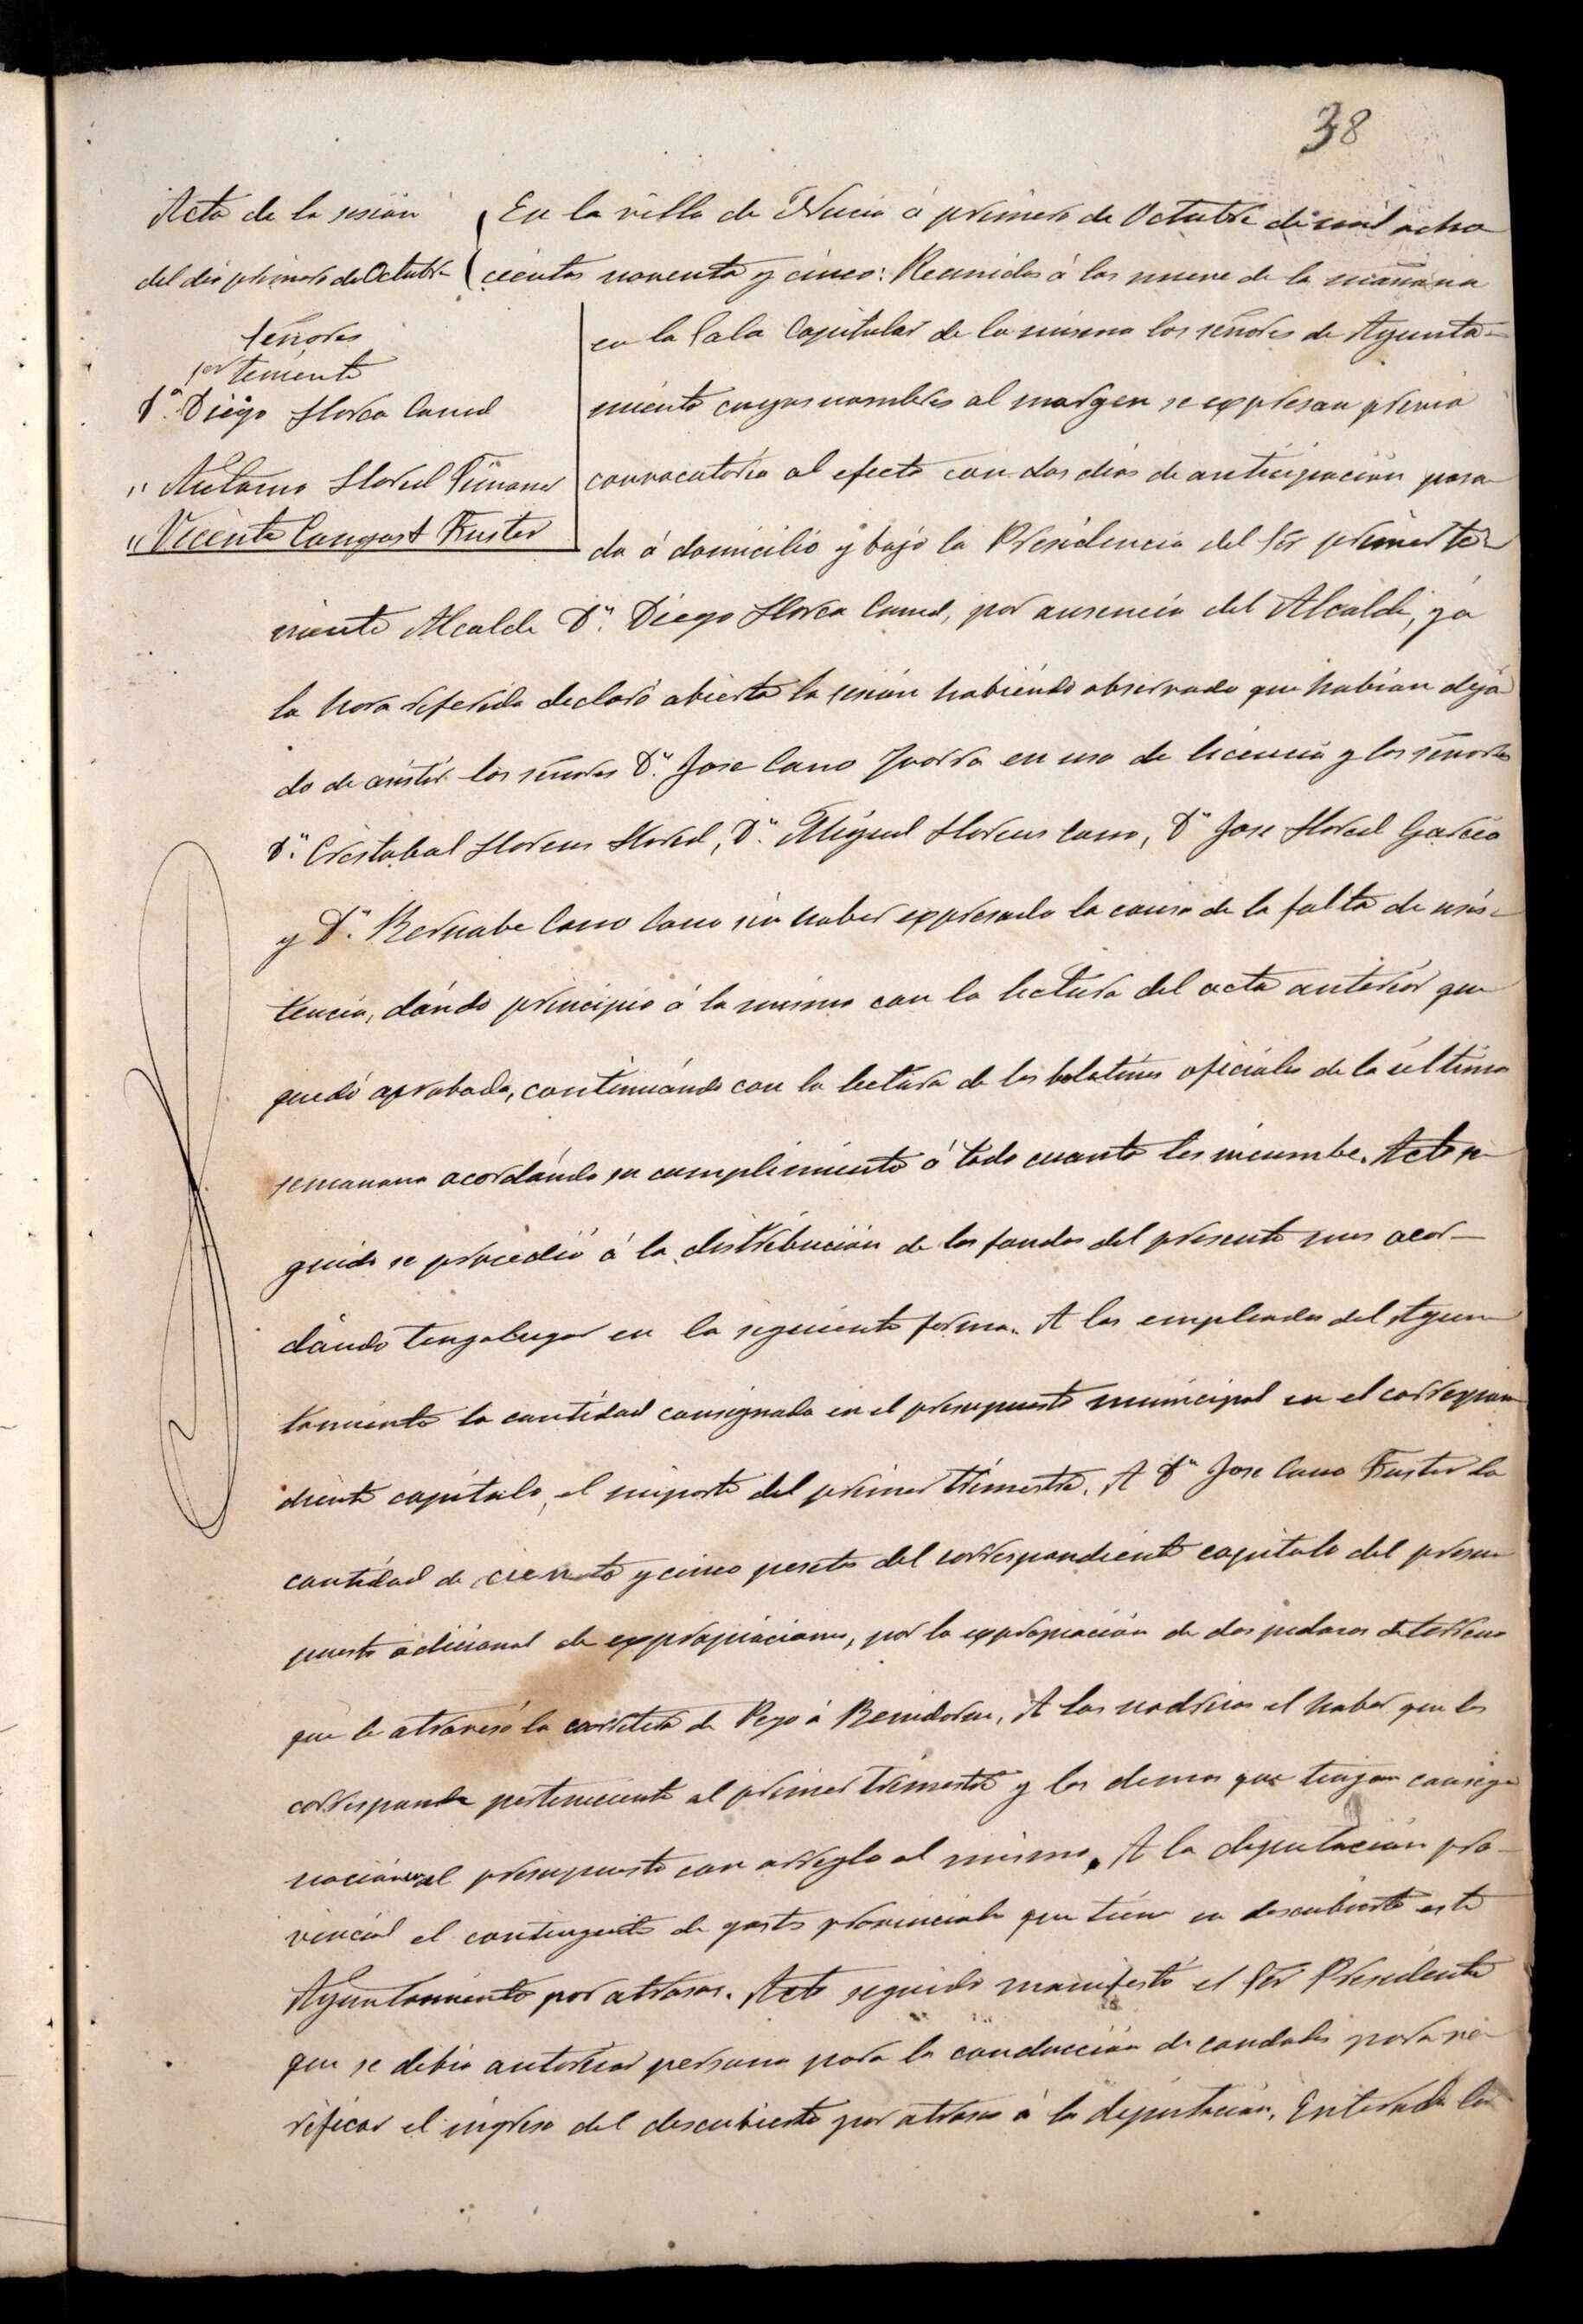 38
Acta de la sesión
del dia primero de Octubre
Señores
1er teniente
Dn Diego Llorca Canal
" Antonio Llorca Timoner
" Vicente Llongost Fuster
En la villa de Nucia á primero de Octubre de mil ocho
cientos noventa y cinco: Reunidos á las nueve de la mañana
en la Sala Capitular de la misma los señores de Ayunta-
miento cuyos nombres al margen se expresan previa
convocatoria al efecto con dos dias de anticipación pasa
da á domicilio y bajo la Presidencia del Sor primer te-
niente Alcalde Dn Diego Llorca, por ausencia del Alcalde, y á
la hora referida declaró abierta la sesión habiendo observado que habian deja
do de asistir los señores Dn Jose Cano Yvorra en uso de licencia y los señores
Dn Cristobal Llorens Llored, Dn Miguel Llorens Cano, Dn Jose Llored Garcia
y Dn Bernabe Cano Cano sin haber expresado la causa de la falta de asis-
tencia, dándo principio á la misma con la lectura del acta anterior que
quedó aprobada, continuándo con la lectura de los boletines oficiales de la última
semanana acordándo su cumplimiento á todo cuanto les incumbe. Acto se
guido se procedió á la distribución de los fondos del presente mes acor-
dándo tenga lugar en la siguiente forma. A los empleados del Ayun
tamiento la cantidad consignada en el presupuesto municipal en el correspon
diente capítulo, el importe del primer trimestre. A Dn Jose Cano Fuster la
cantidad de ciento y cinco pesetas del correspondiente capitulo del presu
puesto adicional de expropiaciones, por la expropiación de dos pedasos de terreno
que le atravesó la carretera de Pego á Benidorm. A las nodrizas el haber que les
corresponde perteneciente al primer trimestre y los demas que tengan consig
nación en el presupuesto con arreglo al mismo. A la diputación pro-
vincial el contingente de gastos provinciales que tiene en descubierto este
Ayuntamiento por atrasos. Acto seguido manifestó el Sor Presidente
que se debia autorizar persona para la conducción de caudales para ve-
rificar el ingreso del descubierto por atrasos á la diputación. Enterados los